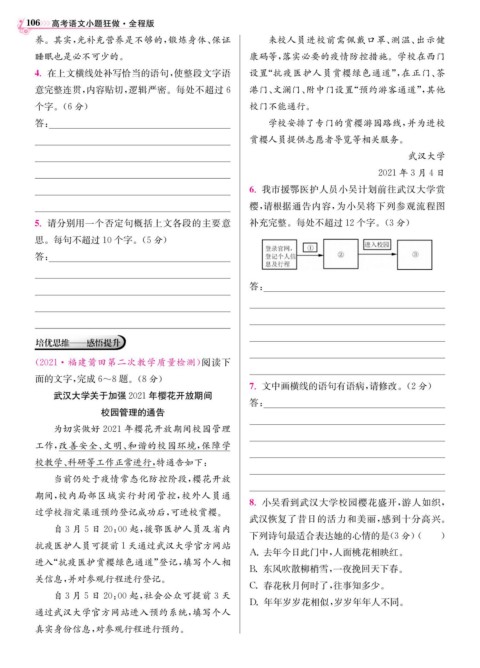 106 高考语文小题狂做·全程版
养。其实,光补充营养是不够的,锻炼身体、保证
睡眠也是必不可少的。
4. 在上文横线处补写恰当的语句,使整段文字语
意完整连贯,内容贴切,逻辑严密。每处不超过 6
个字。(6 分)
答:
5. 请分别用一个否定句概括上文各段的主要意
思。每句不超过 10 个字。(5 分)
答:
培优思维——感悟提升
(2021·福建莆田第二次教学质量检测)阅读下
面的文字,完成 6～8 题。(8 分)
武汉大学关于加强 2021 年樱花开放期间
校园管理的通告
为切实做好 2021 年樱花开放期间校园管理
工作,改善安全、文明、和谐的校园环境,保障学
校教学、科研等工作正常进行,特通告如下:
当前仍处于疫情常态化防控阶段,樱花开放
期间,校内局部区域实行封闭管控,校外人员通
过学校指定渠道预约登记成功后,可进校赏樱。
自 3 月 5 日 20:00 起,援鄂医护人员及省内
抗疫医护人员可提前 1 天通过武汉大学官方网站
进入“抗疫医护赏樱绿色通道”登记,填写个人相
关信息,并对参观行程进行登记。
自 3 月 5 日 20:00 起,社会公众可提前 3 天
通过武汉大学官方网站进入预约系统,填写个人
真实身份信息,对参观行程进行预约。
来校人员进校前需佩戴口罩、测温、出示健
康码等,落实必要的疫情防控措施。学校在西门
设置“抗疫医护人员赏樱绿色通道”,在正门、茶
港门、文澜门、附中门设置“预约游客通道”,其他
校门不能通行。
学校安排了专门的赏樱游园路线,并为进校
赏樱人员提供志愿者导览等相关服务。
武汉大学
2021 年 3 月 4 日
6. 我市援鄂医护人员小吴计划前往武汉大学赏
樱,请根据通告内容,为小吴将下列参观流程图
补充完整。每处不超过 12 个字。(3 分)
登录官网,
登记个人信
息及行程
①
②
进入校园
③
答:
7. 文中画横线的语句有语病,请修改。(2 分)
答:
8. 小吴看到武汉大学校园樱花盛开,游人如织,
武汉恢复了昔日的活力和美丽,感到十分高兴。
下列诗句最适合表达她的心情的是(3 分)( )
A. 去年今日此门中,人面桃花相映红。
B. 东风吹散柳梢雪,一夜挽回天下春。
C. 春花秋月何时了,往事知多少。
D. 年年岁岁花相似,岁岁年年人不同。